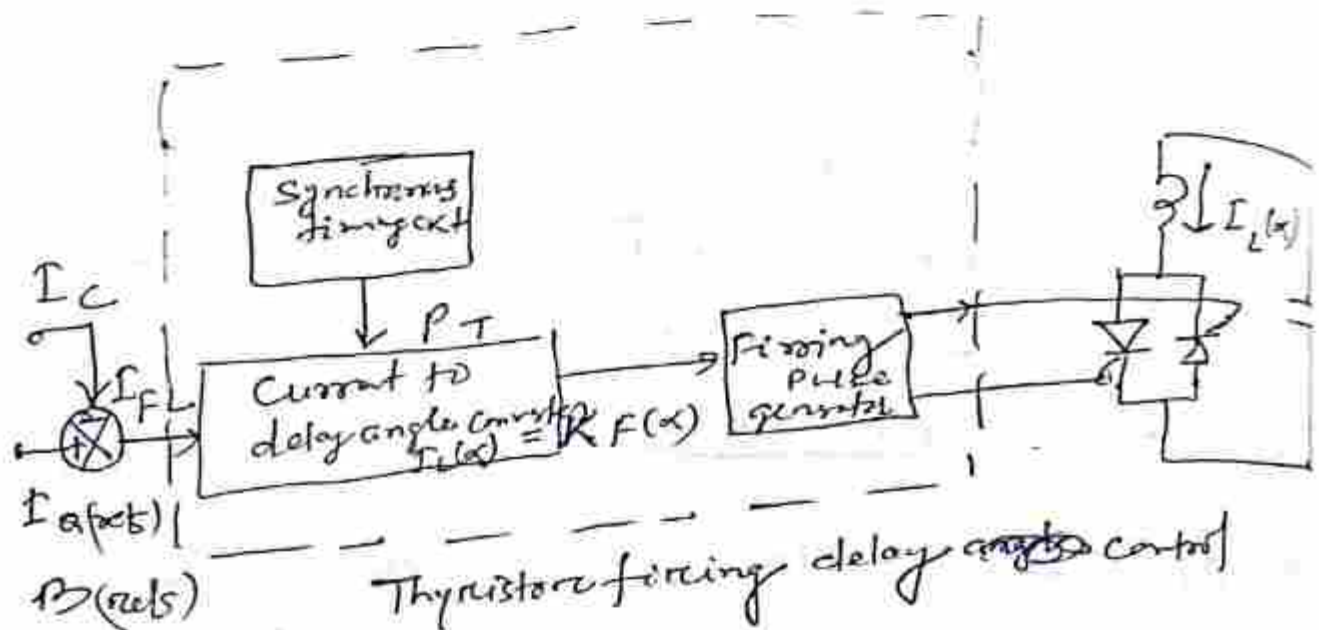 Synchronous
timing ckt
I_C
P_T
I_L(α)
I_F
Current to
delay angle converter
I_L(α) = K F(α)
Firring
Pulse
generator
I_Q(ref)
B(ref)
Thyristor firing delay angle control